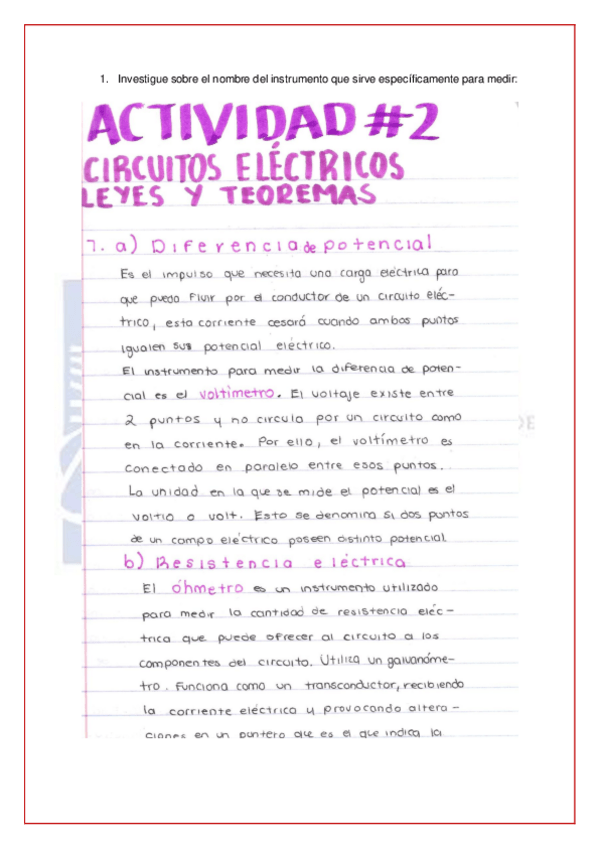 1. Investigue sobre el nombre del instrumento que sirve específicamente para medir:
ACTIVIDAD #2
CIRCUITOS ELÉCTRICOS
LEYES Y TEOREMAS
1. a) Diferencia de potencial
Es el impulso que necesita una carga eléctrica para
que pueda fluir por el conductor de un circuito eléc-
trico, esta corriente cesará cuando ambos puntos
igualen sus potencial eléctrico.
El instrumento para medir la diferencia de poten-
cial es el voltímetro. El voltaje existe entre
2 puntos y no circula por un circuito como
en la corriente. Por ello, el voltímetro es
conectado en paralelo entre esos puntos.
La unidad en la que se mide el potencial es el
voltio o volt. Esto se denomina si dos puntos
de un campo eléctrico poseen distinto potencial.
b) Resistencia eléctrica
El óhmetro es un instrumento utilizado
para medir la cantidad de resistencia eléc-
trica que puede ofrecer al circuito a los
componentes del circuito. Utiliza un galvanóme-
tro. Funciona como un transconductor, recibiendo
la corriente eléctrica y provocando altera-
ciones en un puntero que es el que indica la
DE